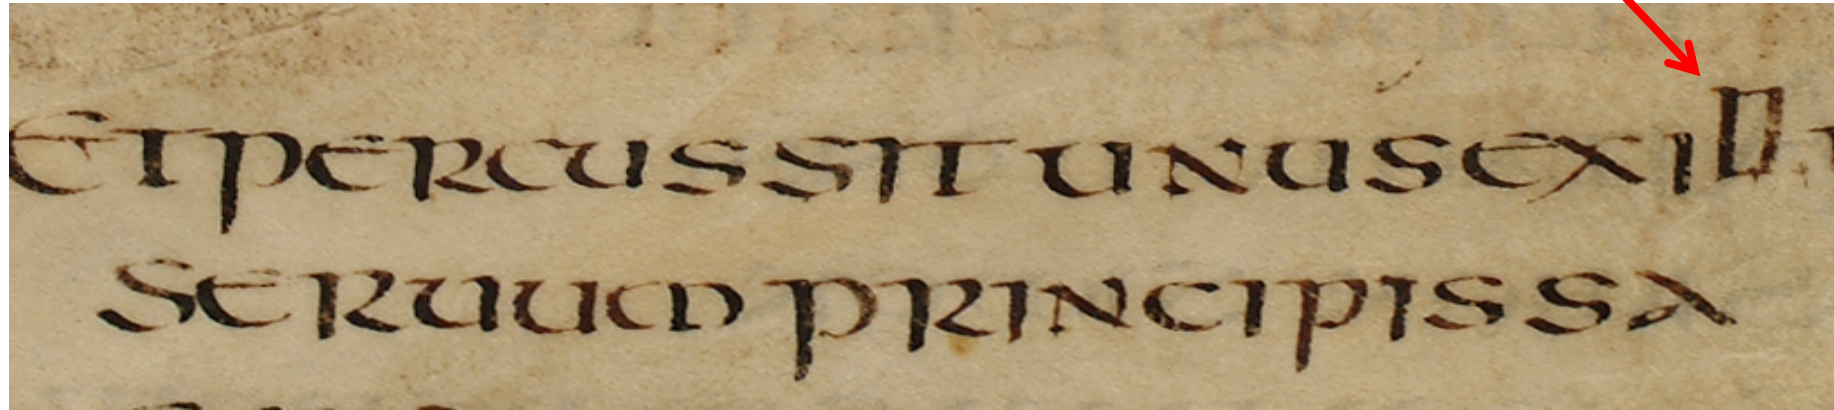 ETPERCUSSITUNUSEX
SERUUMPRINCIPISSA